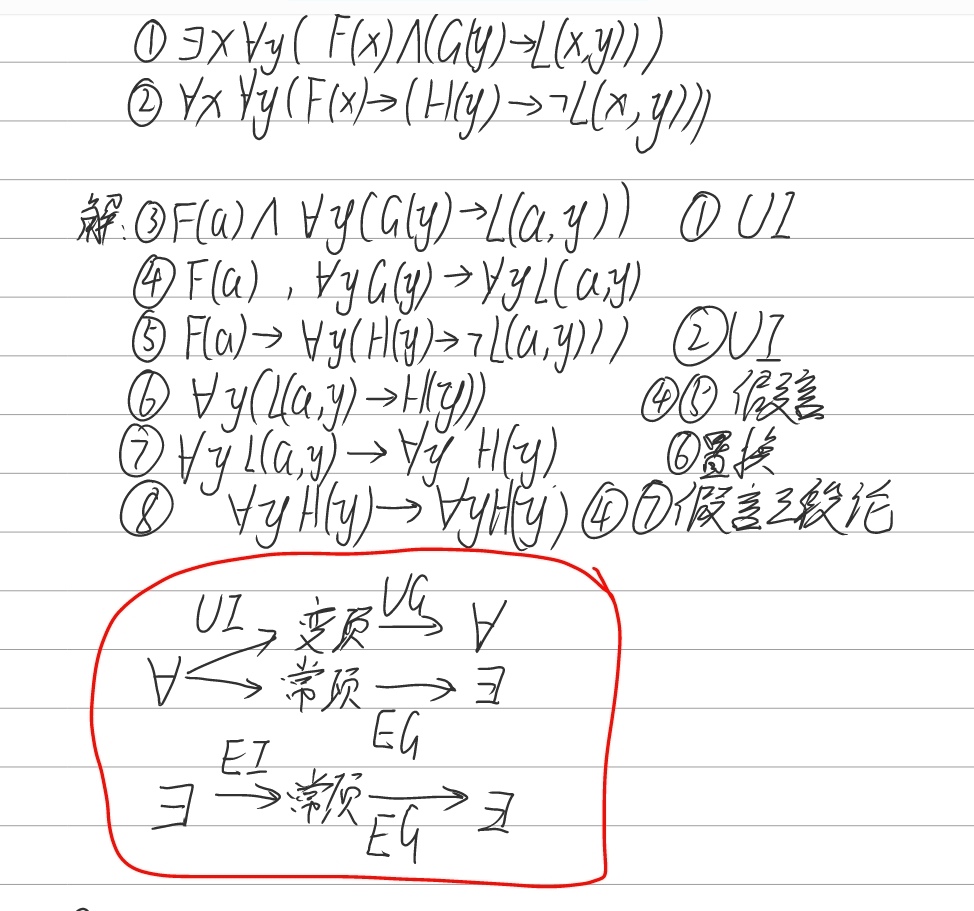 ① ∃x∀y(F(x)∧(G(y)→L(x,y)))
② ∀x∀y(F(x)→(H(y)→¬L(x,y)))
解:③F(a)∧∀y(G(y)→L(a,y)) ①UI
④F(a),∀yG(y)→∀yL(a,y)
⑤F(a)→∀y(H(y)→¬L(a,y))) ②UI
⑥∀y(L(a,y)→H(y)) ④⑤假言
⑦∀yL(a,y)→∀y H(y) ⑥置换
⑧ ∀yH(y)→∀yH(y) ④⑦假言三段论
UI 变项 UG → ∀
∀ 常项 → ∃
EG
EI
∃ → 常项 → ∃
EG